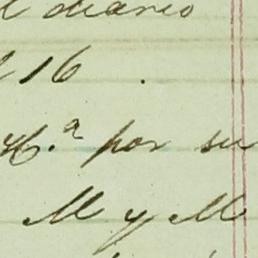 l diario
16.
H.ª por su
M y M